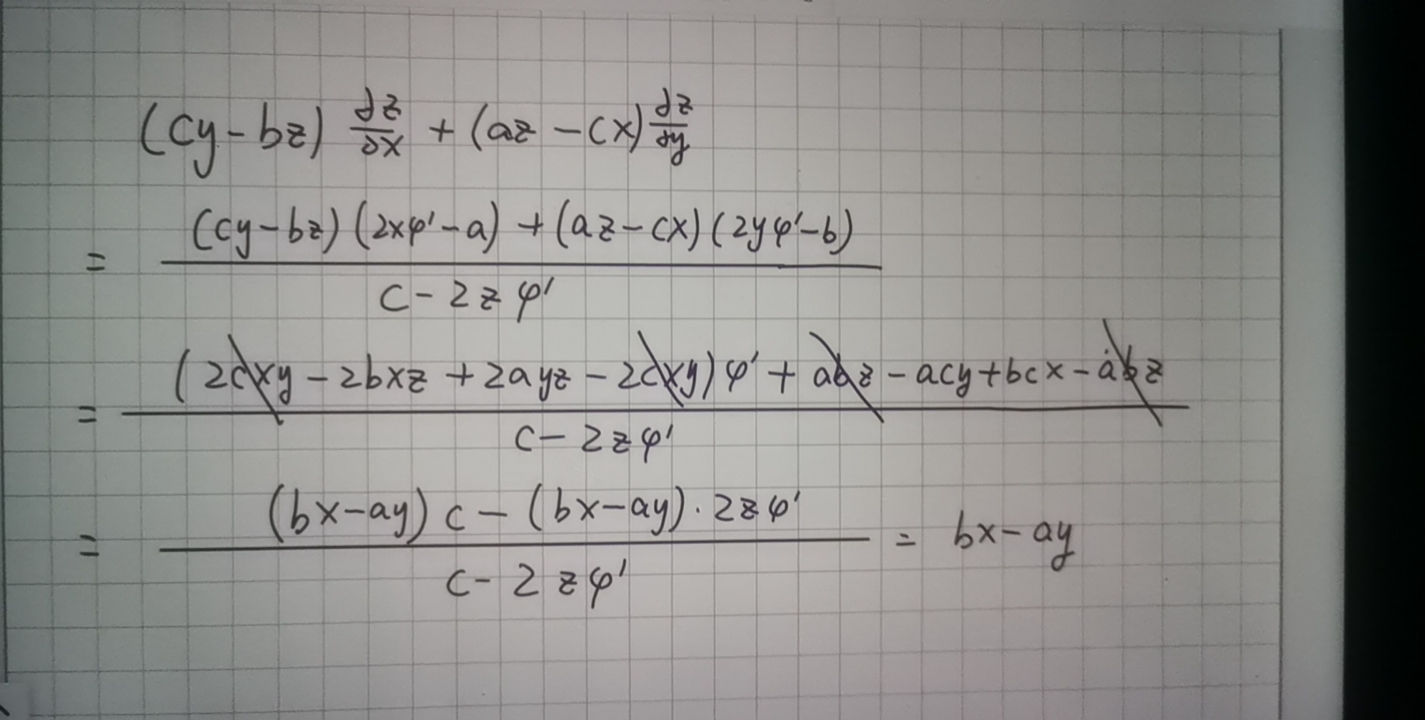 (cy-bz) ∂z/∂x + (az-cx) ∂z/∂y
= ((cy-bz)(2xφ'-a) + (az-cx)(2yφ'-b)) / (c-2zφ')
= ((2cxy-2bxz+2ayz-2cxy)φ' + abz-acy+bcx-abz) / (c-2zφ')
= ((bx-ay)c-(bx-ay)·2zφ') / (c-2zφ') = bx-ay